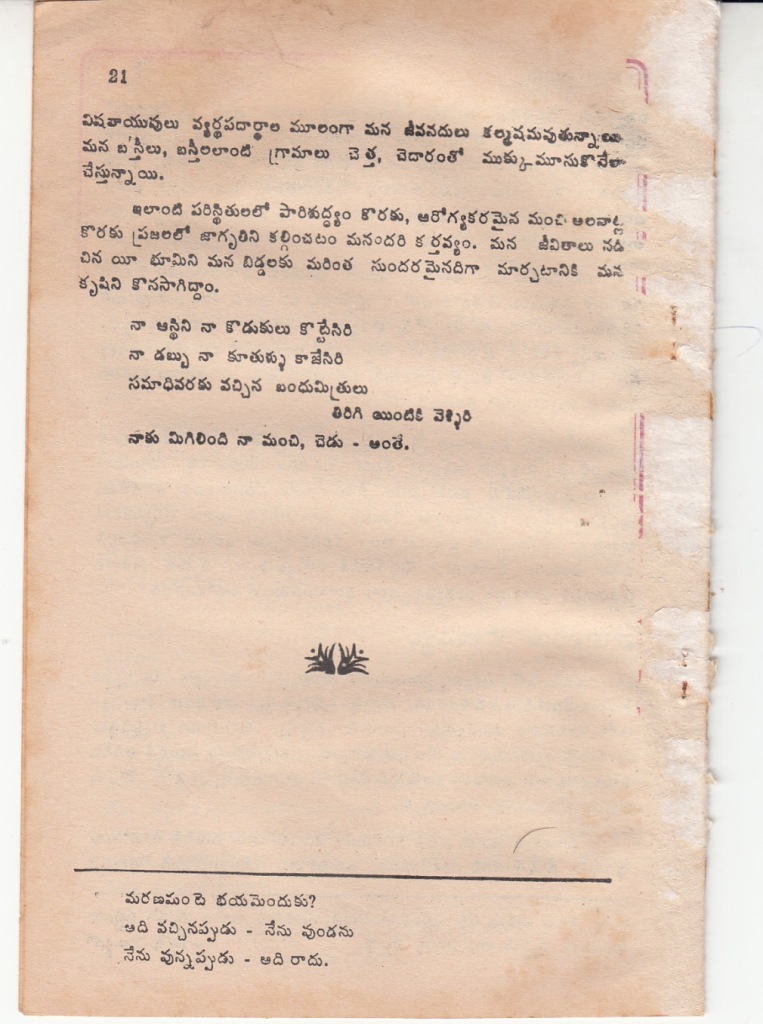 21
విషవాయువులు వ్యర్థపదార్థాల మూలంగా మన జీవనదులు కల్మషమవుతున్నాయి
మన బస్తీలు, బస్తీలలాంటి గ్రామాలు చెత్త, చెదారంతో ముక్కుమూసుకొనేలా
చేస్తున్నాయి.
ఇలాంటి పరిస్థితులలో పారిశుద్ధ్యం కొరకు, ఆరోగ్యకరమైన మంచి అలవాట్ల
కొరకు ప్రజలలో జాగృతిని కల్గించటం మనందరి కర్తవ్యం. మన జీవితాలు నడి
చిన యీ భూమిని మన బిడ్డలకు మరింత సుందరమైనదిగా మార్చటానికి మన
కృషిని కొనసాగిద్దాం.
నా ఆస్థిని నా కొడుకులు కొట్టేసిరి
నా డబ్బు నా కూతుళ్ళు కాజేసిరి
సమాధివరకు వచ్చిన బంధుమిత్రులు
తిరిగి యింటికి వెళ్ళిరి
నాకు మిగిలింది నా మంచి, చెడు - అంతే.
మరణమంటె భయమెందుకు?
అది వచ్చినప్పుడు - నేను వుండను
నేను వున్నప్పుడు - అది రాదు.